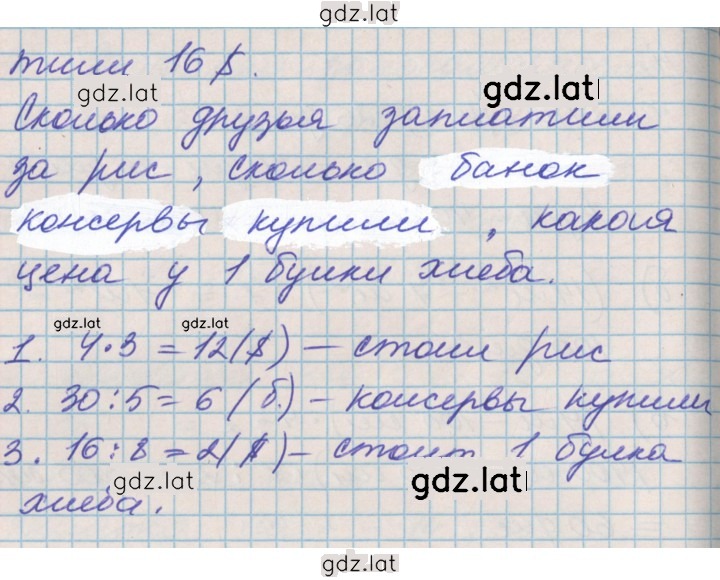 gdz.lat
тили 16 $.
gdz.lat gdz.lat
Сколько друзья заплатили
за рис, сколько банок
консервы купили, какая
цена у 1 булки хлеба.
gdz.lat gdz.lat
1. 4·3 = 12($) – стоил рис
2. 30:5 = 6 (б.) – консервы купили
3. 16:8 = 2($) – стоит 1 булка
gdz.lat gdz.lat
хлеба.
gdz.lat